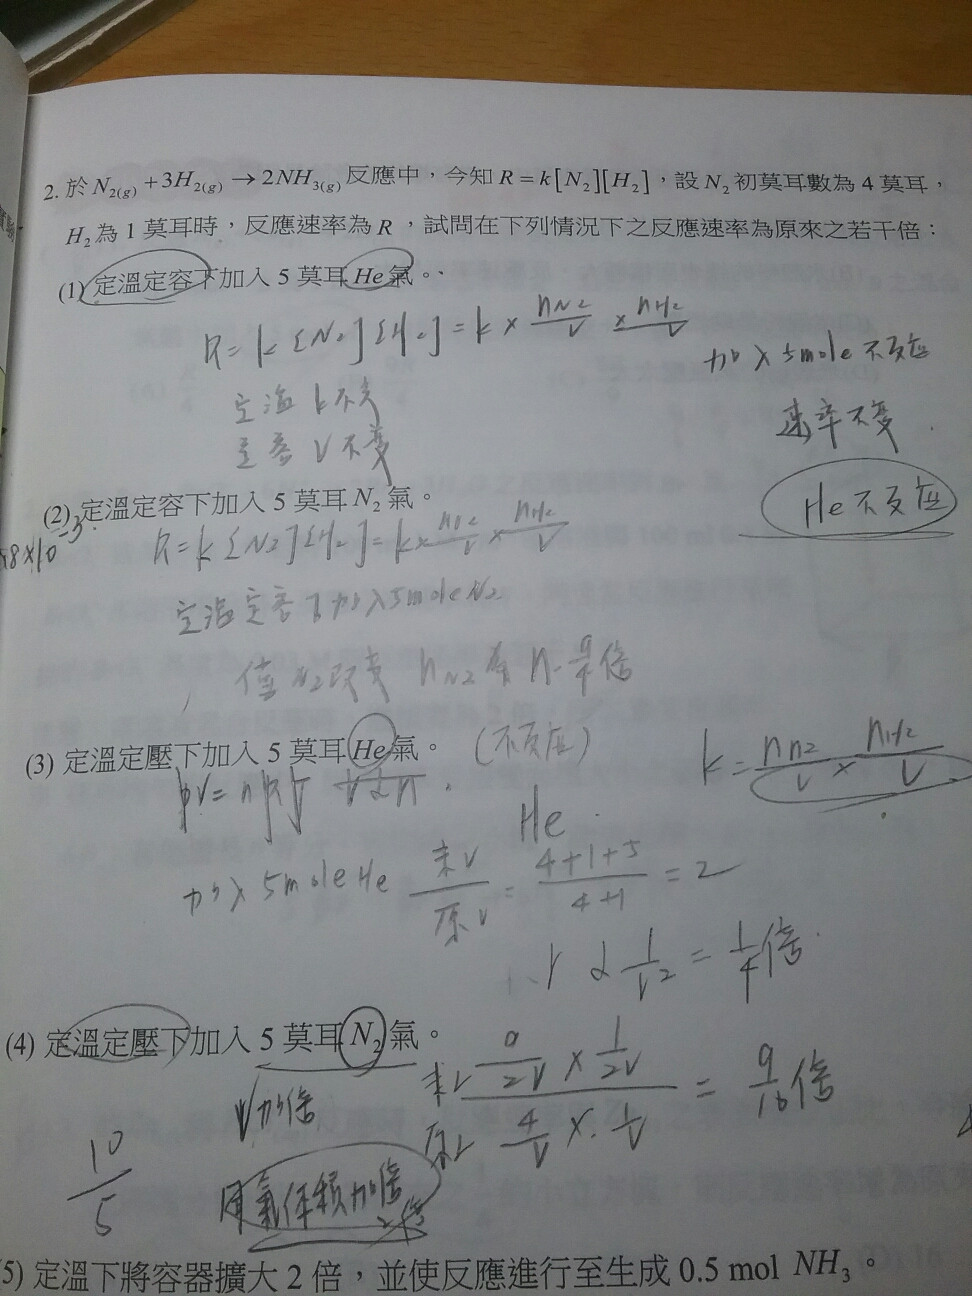 2. 於 N₂₍g₎ + 3H₂₍g₎ → 2NH₃₍g₎ 反應中，今知 R = k[N₂][H₂]，設 N₂ 初莫耳數為 4 莫耳，
H₂ 為 1 莫耳時，反應速率為 R，試問在下列情況下之反應速率為原來之若干倍：
(1) 定溫定容下加入 5 莫耳 He 氣。
R = k [N₂] [H₂] = k × nN₂/V × nH₂/V
加入 5 mole 不反應
定溫 k 不變
速率不變
定容 V 不變
He 不反應
(2) 定溫定容下加入 5 莫耳 N₂ 氣。
8×10⁻³
R = k [N₂] [H₂] = k × nN₂/V × nH₂/V
定溫定容下加入 5 mole N₂
N₂改變 nN₂ 9/4 倍
(3) 定溫定壓下加入 5 莫耳 He 氣。 (不反應)
k = nn₂/V × nH₂/V
PV = nRT V∝n
He
加入 5 mole He 末V/原V = 4+1+5/4+1 = 2
r ∝ 1/V² = 1/4 倍
(4) 定溫定壓下加入 5 莫耳 N₂ 氣。
末r 9/2V × 1/2V / 原r 4/V × 1/V = 9/16 倍
V加倍
10/5
用氣体積加倍
2倍
(5) 定溫下將容器擴大 2 倍，並使反應進行至生成 0.5 mol NH₃。